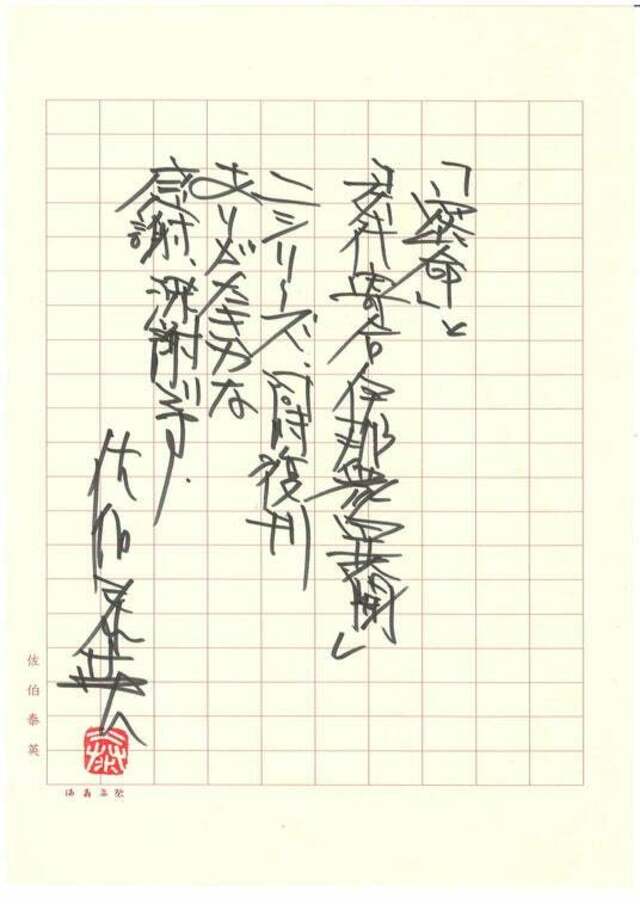 「密命」と
「交代寄合伊那衆異聞」
二シリーズ、同時復刊
ありがたきかな
感謝、深謝です.
佐伯泰英
佐伯泰英